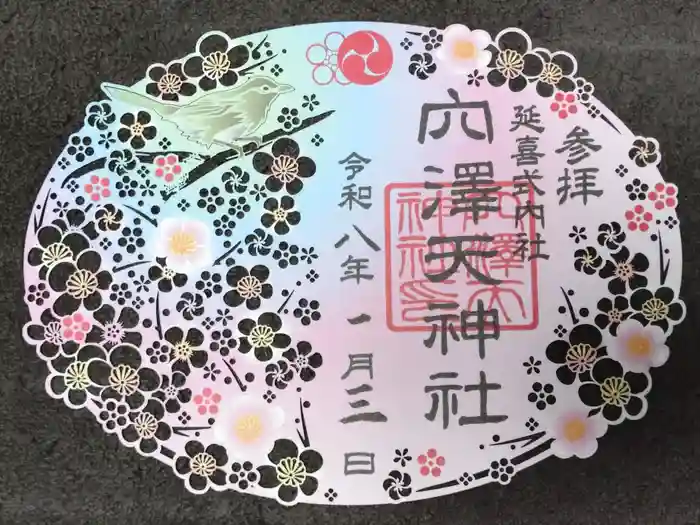 参拝
延喜式内社
穴澤天神社
令和八年一月三日